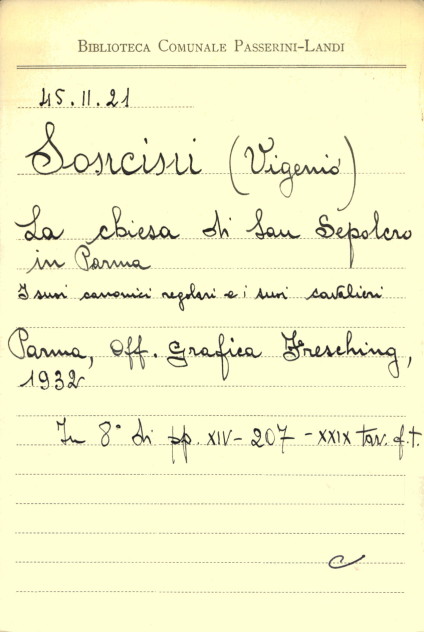 BIBLIOTECA COMUNALE PASSERINI-LANDI
45.II.21
Soncini (Vigenio)
La chiesa di San Sepolcro
in Parma
I suoi canonici regolari e i suoi cavalieri
Parma, Off. Grafica Fresching,
1932
In 8° di pp. XIV-207-XXIX tav. f.t.
C